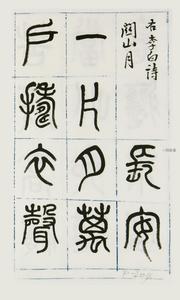 李白詩
關山月
長安
一片月萬
戶擣衣聲